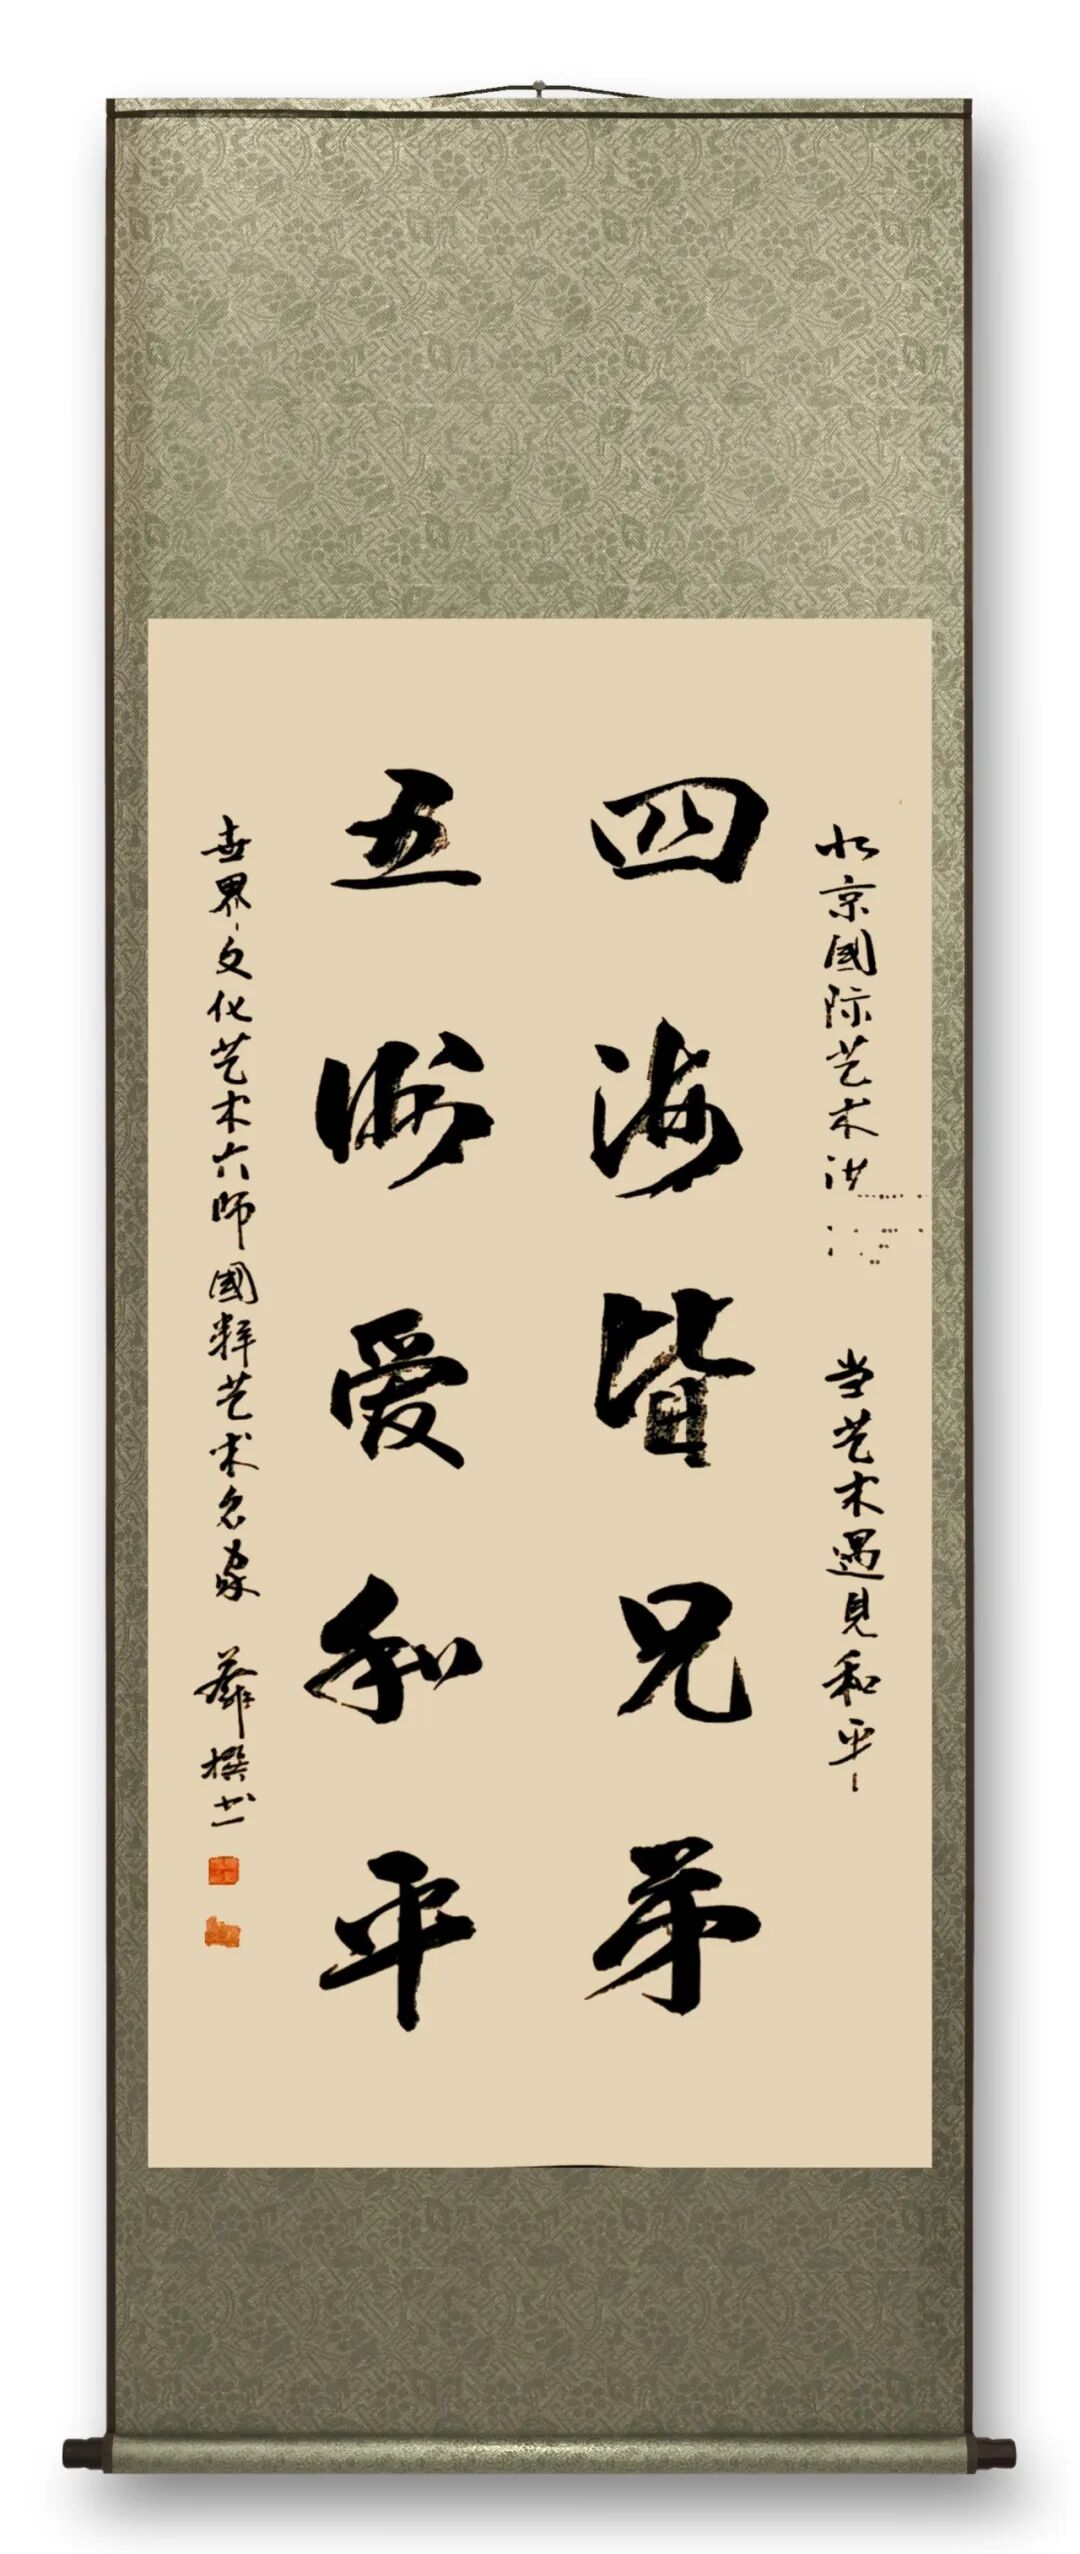 北京國际艺术
当艺术遇見和平
四海皆兄弟
五洲爱和平
世界文化艺术大师國粹艺术名家 薛撰书